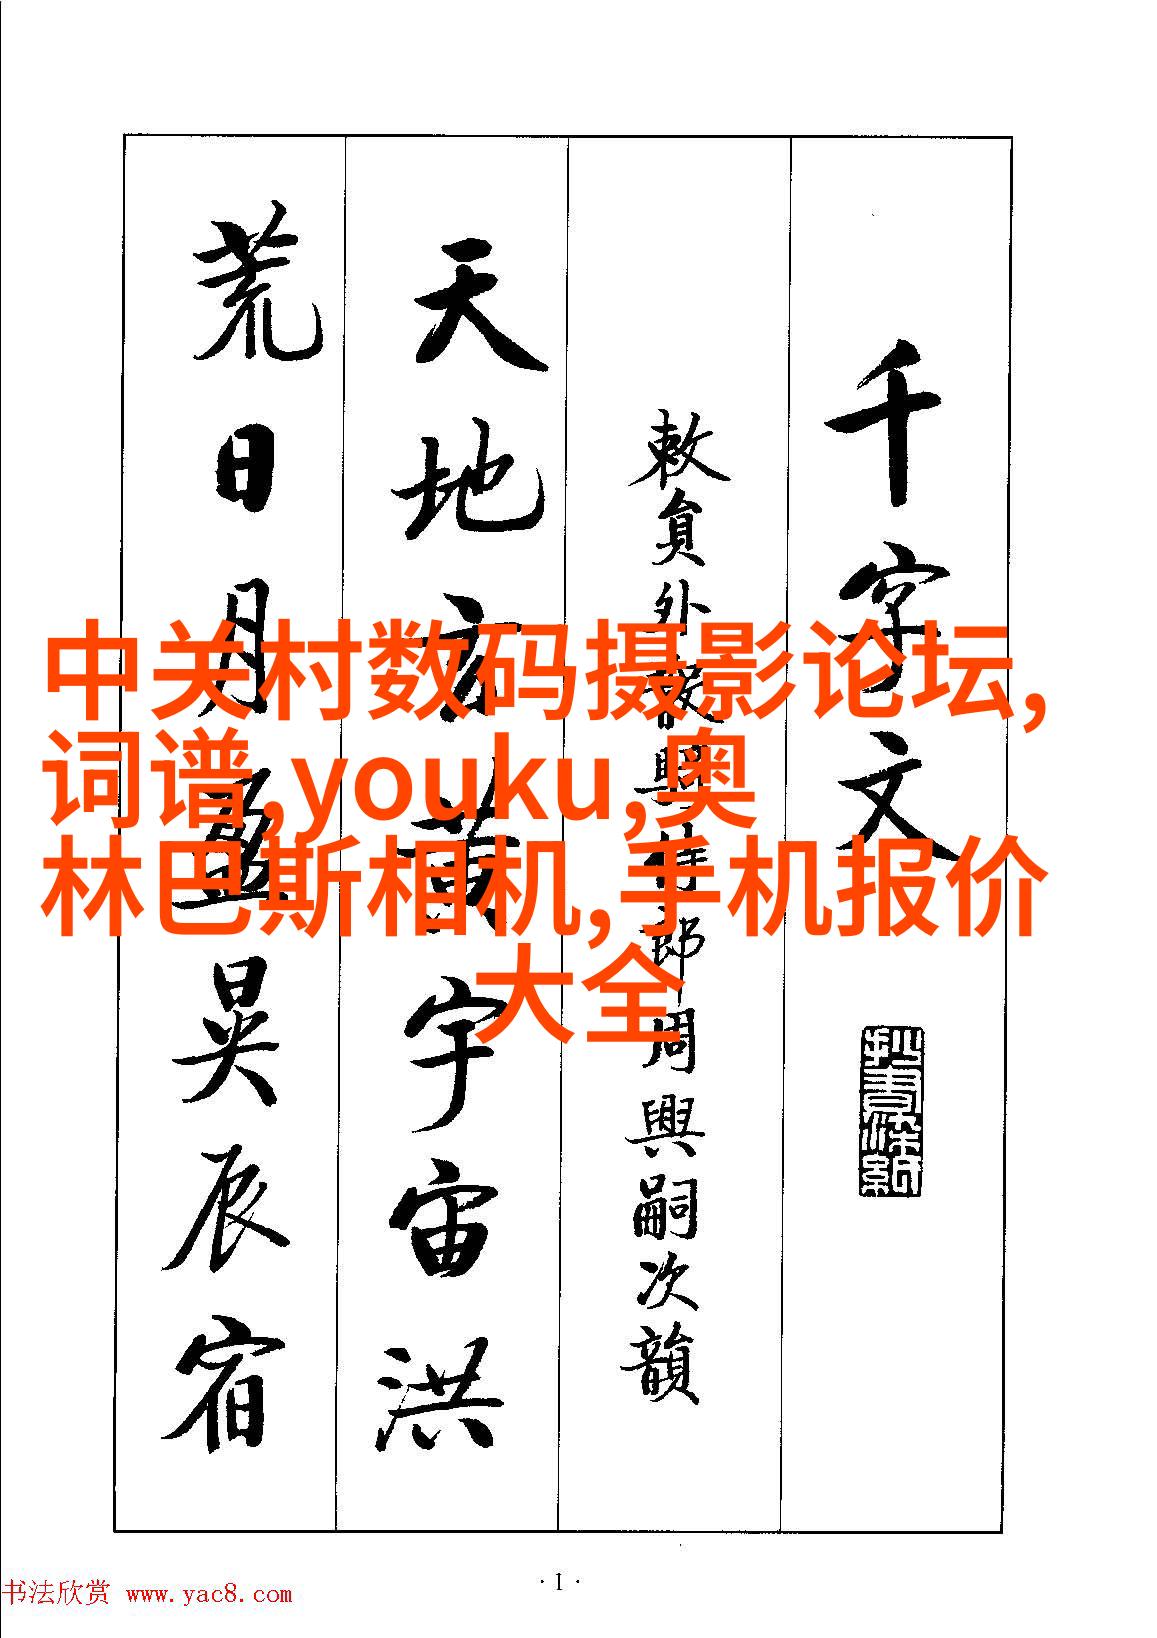 千字文
敕員外散騎侍郎周興嗣次韻
天地玄黃宇宙洪
荒日月盈昃辰宿
中关村数码摄影论坛,
词谱,youku,奥
林巴斯相机,手机报价
大全
·1·
书法欣赏 www.yac8.com